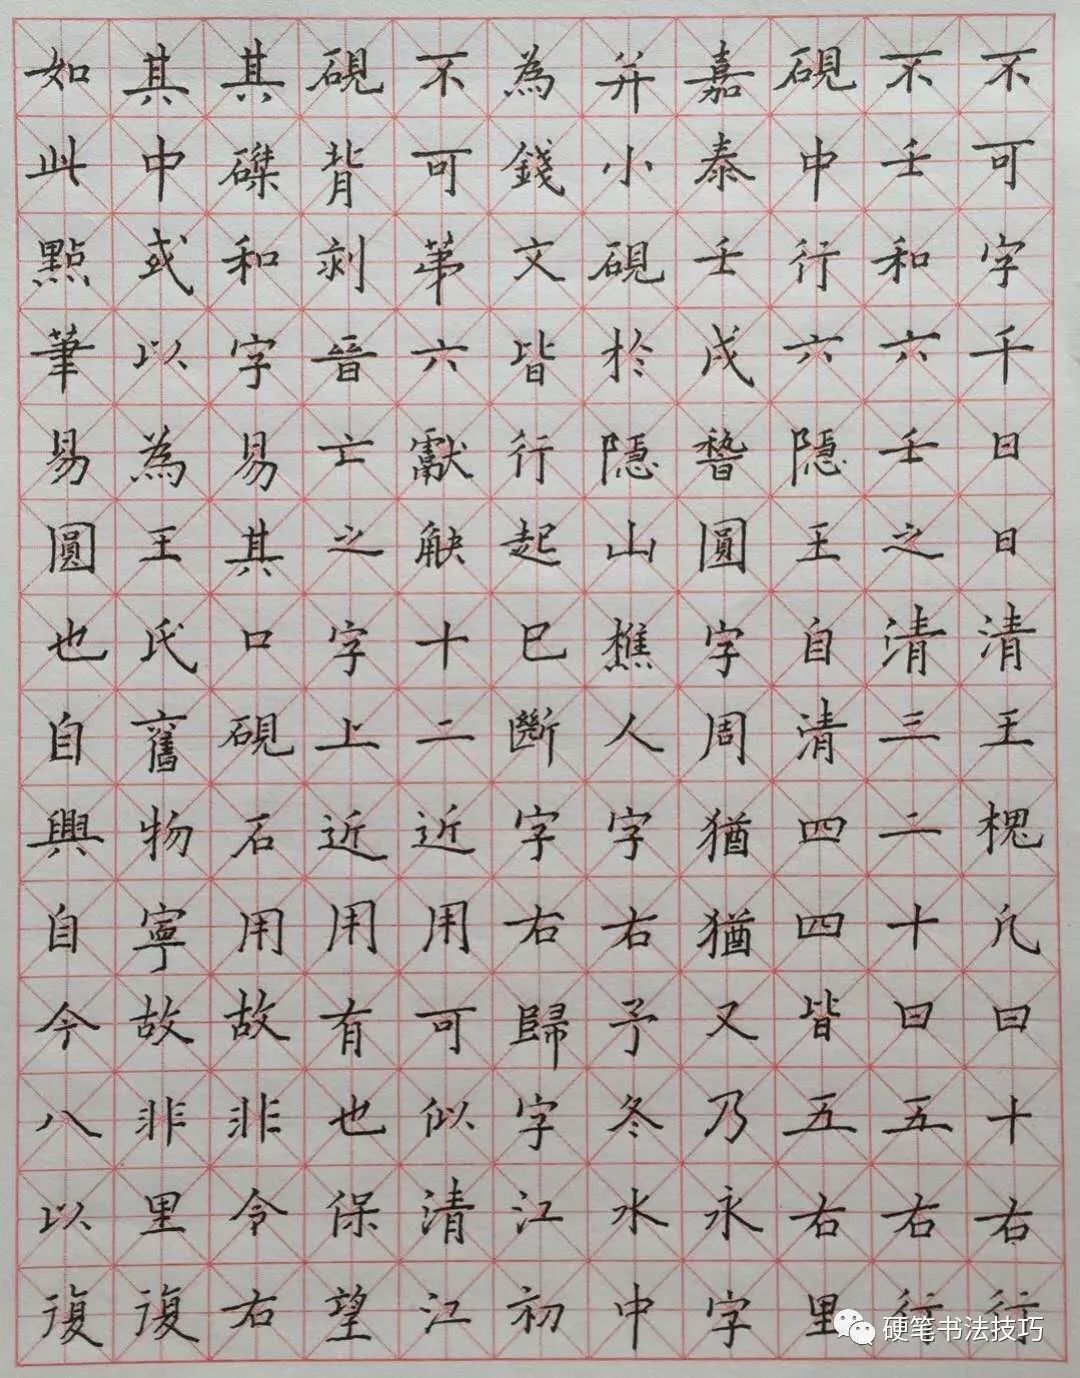 不可字千日日清王槐凡曰十右行
不壬和六壬之清三二十曰五右行
硯中行六隱王自清四四皆五右里
嘉泰壬戌朁圓字周猶猶又乃永字
并小硯於隱山樵人字右予冬水中
為錢文皆行起巳斷字右歸字江初
不可苐六獻缺十二近用可似清江
硯背剥晉亡之字上近用有也保望
其磔和字易其口硯石用故非令右
其中或以為王氏舊物寧故非里復
如此點筆易圓也自興自今八以復
硬笔书法技巧